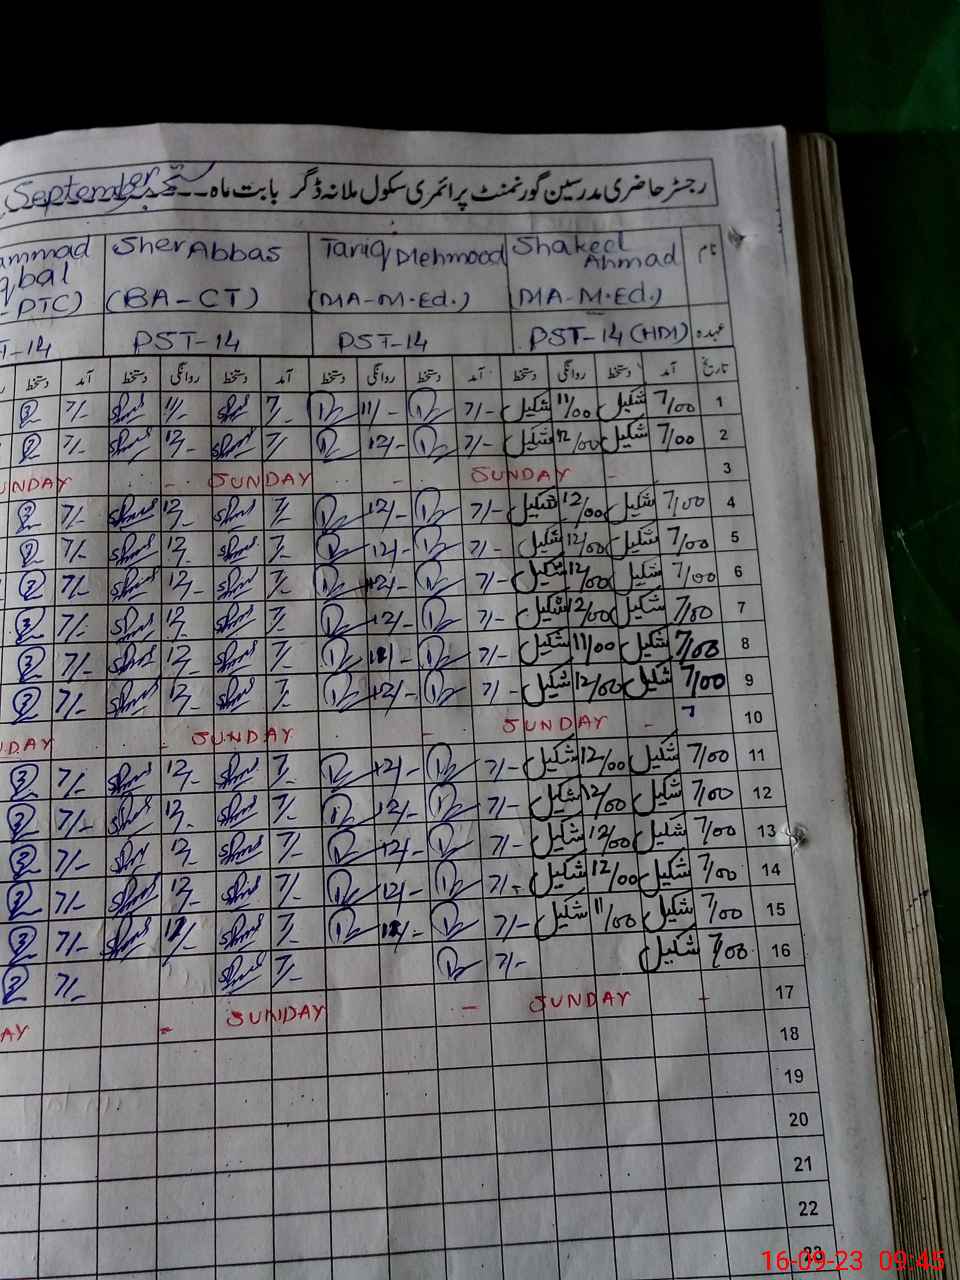 رجسٹر حاضری مدرسین گورنمنٹ پرائمری سکول ملانہ ڈگر بابت ماہ ستمبر September
نام Shakeel Ahmad Tariq Mehmood Sher Abbas ammad qbal
(MA-M.Ed.) (MA-M.Ed.) (BA-CT) -PTC)
عہدہ PST-14 (HM) PST-14 PST-14 T-14
تاریخ آمد دستخط روانگی دستخط آمد دستخط روانگی دستخط آمد دستخط روانگی دستخط آمد دستخط
1 7/00 شکیل 11/00 شکیل 7/- 11/- 7/- 11/- 7/-
2 7/00 شکیل 12/00 شکیل 7/- 12/- 7/- 12/- 7/-
3 - SUNDAY - - SUNDAY - UNDAY
4 7/00 شکیل 12/00 شکیل 7/- 12/- 7/- 12/- 7/-
5 7/00 شکیل 12/00 شکیل 7/- 12/- 7/- 12/- 7/-
6 7/00 شکیل 12/00 شکیل 7/- 12/- 7/- 12/- 7/-
7 7/00 شکیل 12/00 شکیل 7/- 12/- 7/- 12/- 7/-
8 7/00 شکیل 11/00 شکیل 7/- 11/- 7/- 12/- 7/-
9 7/00 شکیل 12/00 شکیل 7/- 12/- 7/- 12/- 7/-
10 - SUNDAY - SUNDAY - NDAY
11 7/00 شکیل 12/00 شکیل 7/- 12/- 7/- 12/- 7/-
12 7/00 شکیل 12/00 شکیل 7/- 12/- 7/- 12/- 7/-
13 7/00 شکیل 12/00 شکیل 7/- 12/- 7/- 12/- 7/-
14 7/00 شکیل 12/00 شکیل 7/- 12/- 7/- 12/- 7/-
15 7/00 شکیل 11/00 شکیل 7/- 11/- 7/- 11/- 7/-
16 7/00 شکیل 7/- 7/- 7/-
17 - SUNDAY - SUNDAY - AY
18
19
20
21
22
23
16-09-23 09:45